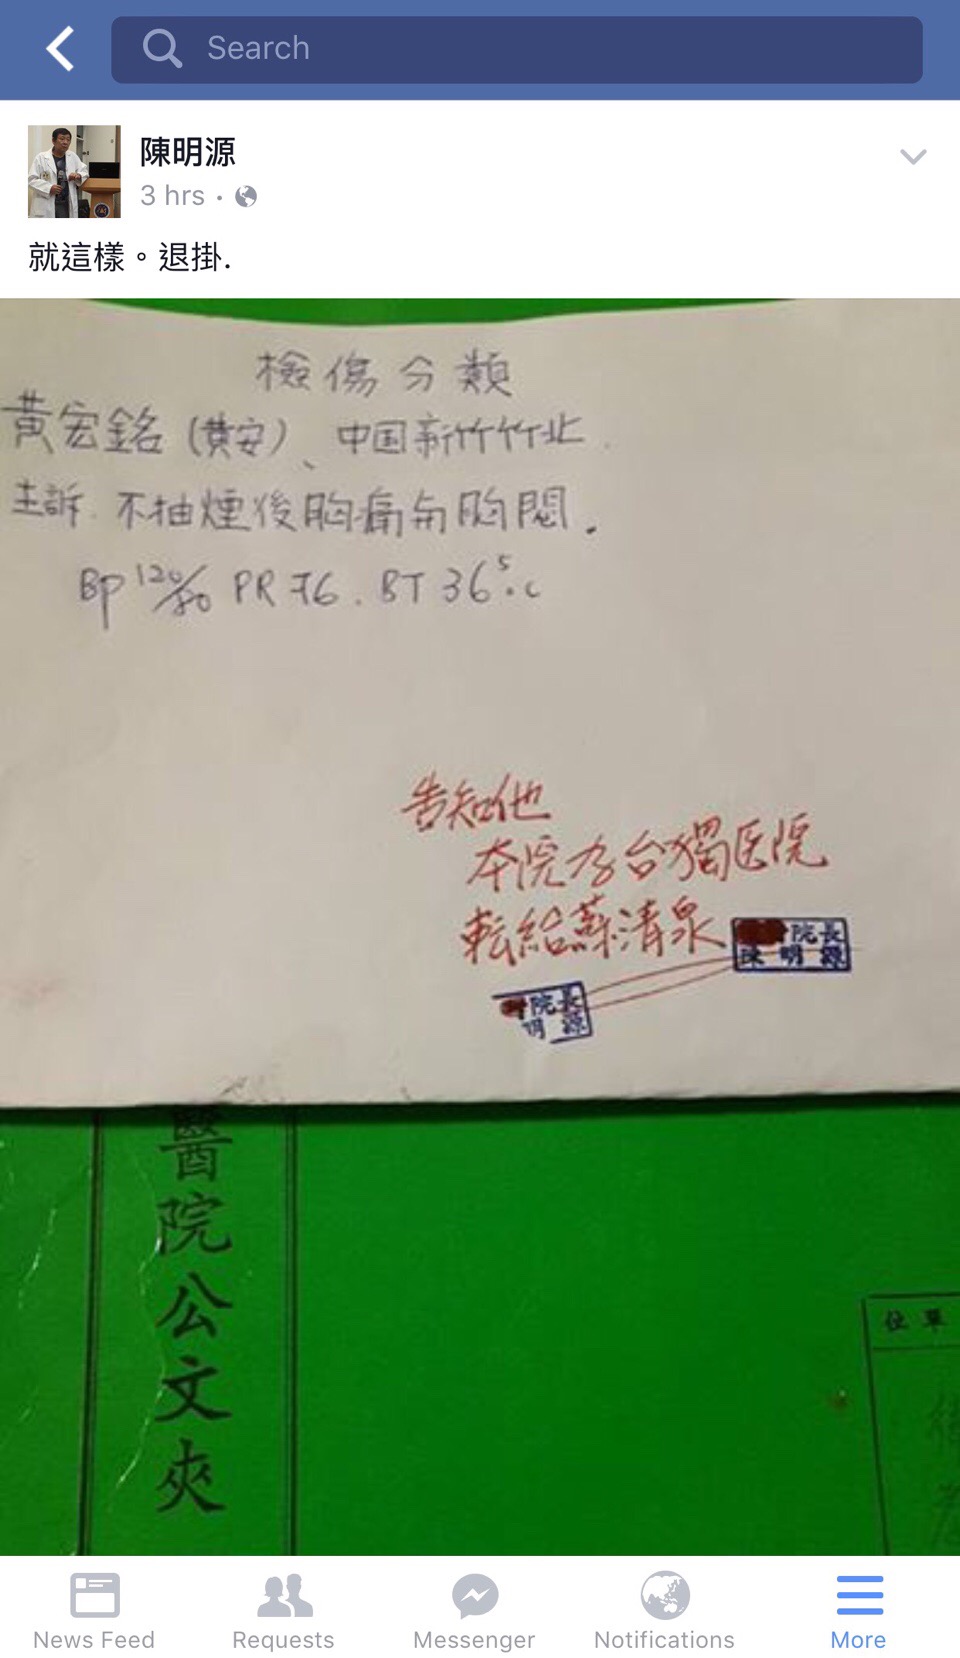 Search
陳明源
3 hrs
就這樣。退掛.
檢傷分類
黃宏銘(黃安)、中国新竹竹北.
主訴. 不抽煙後胸痛与胸悶.
BP 120/80 PR 76. BT 36⁵°C
告知他
本院为台獨医院
転給蘇清泉
院長
陳明源
院長
明源
醫院公文夾
位單
News Feed
Requests
Messenger
Notifications
More